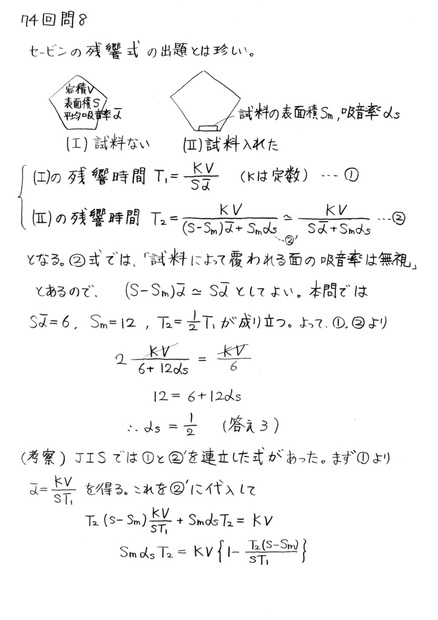 74回問8
セービンの残響式の出題とは珍しい。
容積V
表面積S
平均吸音率ᾱ
試料の表面積Sm, 吸音率αs
(Ⅰ)試料ない (Ⅱ)試料入れた
(Ⅰ)の残響時間 T₁ = KV / Sᾱ (Kは定数) … ①
(Ⅱ)の残響時間 T₂ = KV / ((S-Sm)ᾱ + Smαs) ≃ KV / (Sᾱ + Smαs) … ②
…②′
となる。②式では、「試料によって覆われる面の吸音率は無視」
とあるので、 (S-Sm)ᾱ ≃ Sᾱ としてよい。本問では
Sᾱ = 6, Sm = 12, T₂ = 1/2 T₁ が成り立つ。よって、①,②より
2 KV / (6 + 12αs) = KV / 6
12 = 6 + 12αs
∴ αs = 1/2 (答え3)
(考察) JISでは①と②′を連立した式があった。まず①より
ᾱ = KV / ST₁ を得る。これを②′に代入して
T₂(S-Sm) KV / ST₁ + SmαsT₂ = KV
SmαsT₂ = KV { 1 - T₂(S-Sm) / ST₁ }